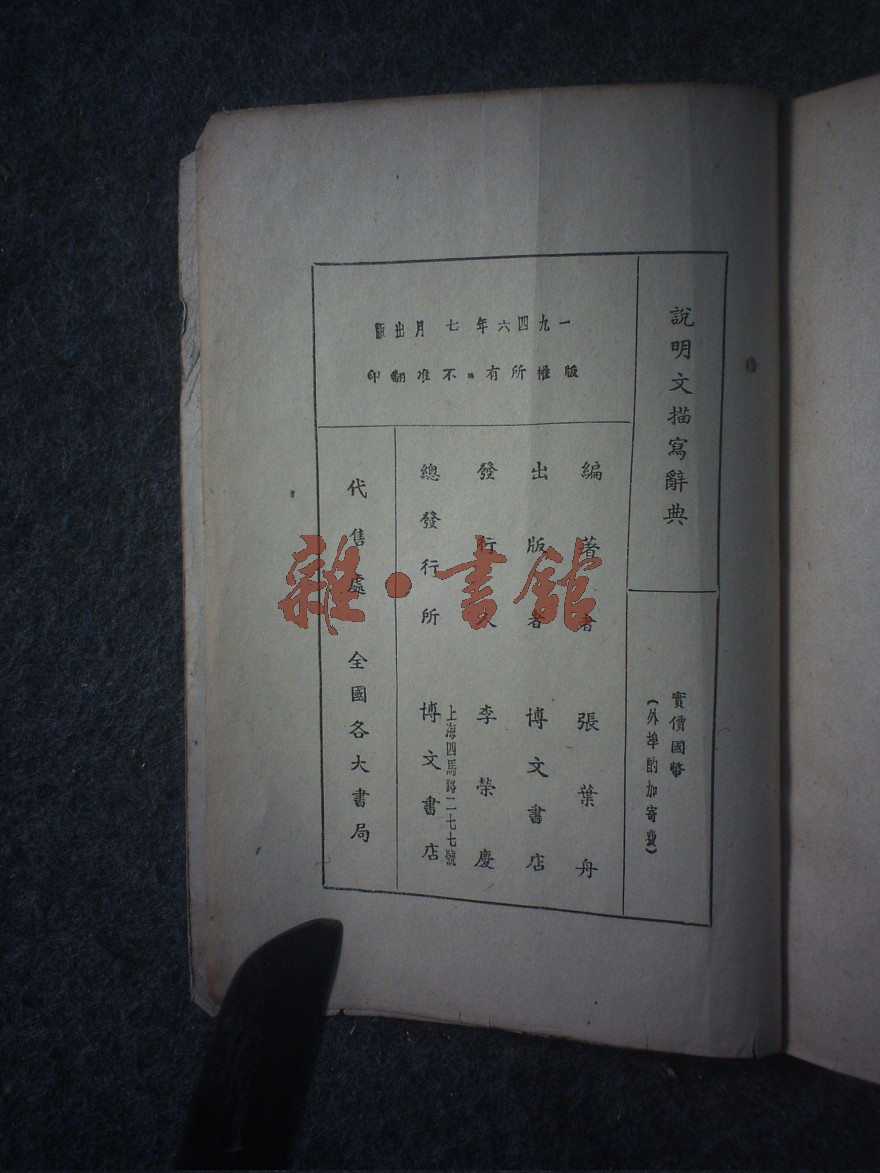 說明文描寫辭典
實價國幣
(外埠酌加寄費)
一九四六年七月出版
版權所有．不准翻印
編著者 張葉舟
出版者 博文書店
發行人 李榮慶
上海四馬路二七七號
總發行所 博文書店
代售處 全國各大書局
雜·書館